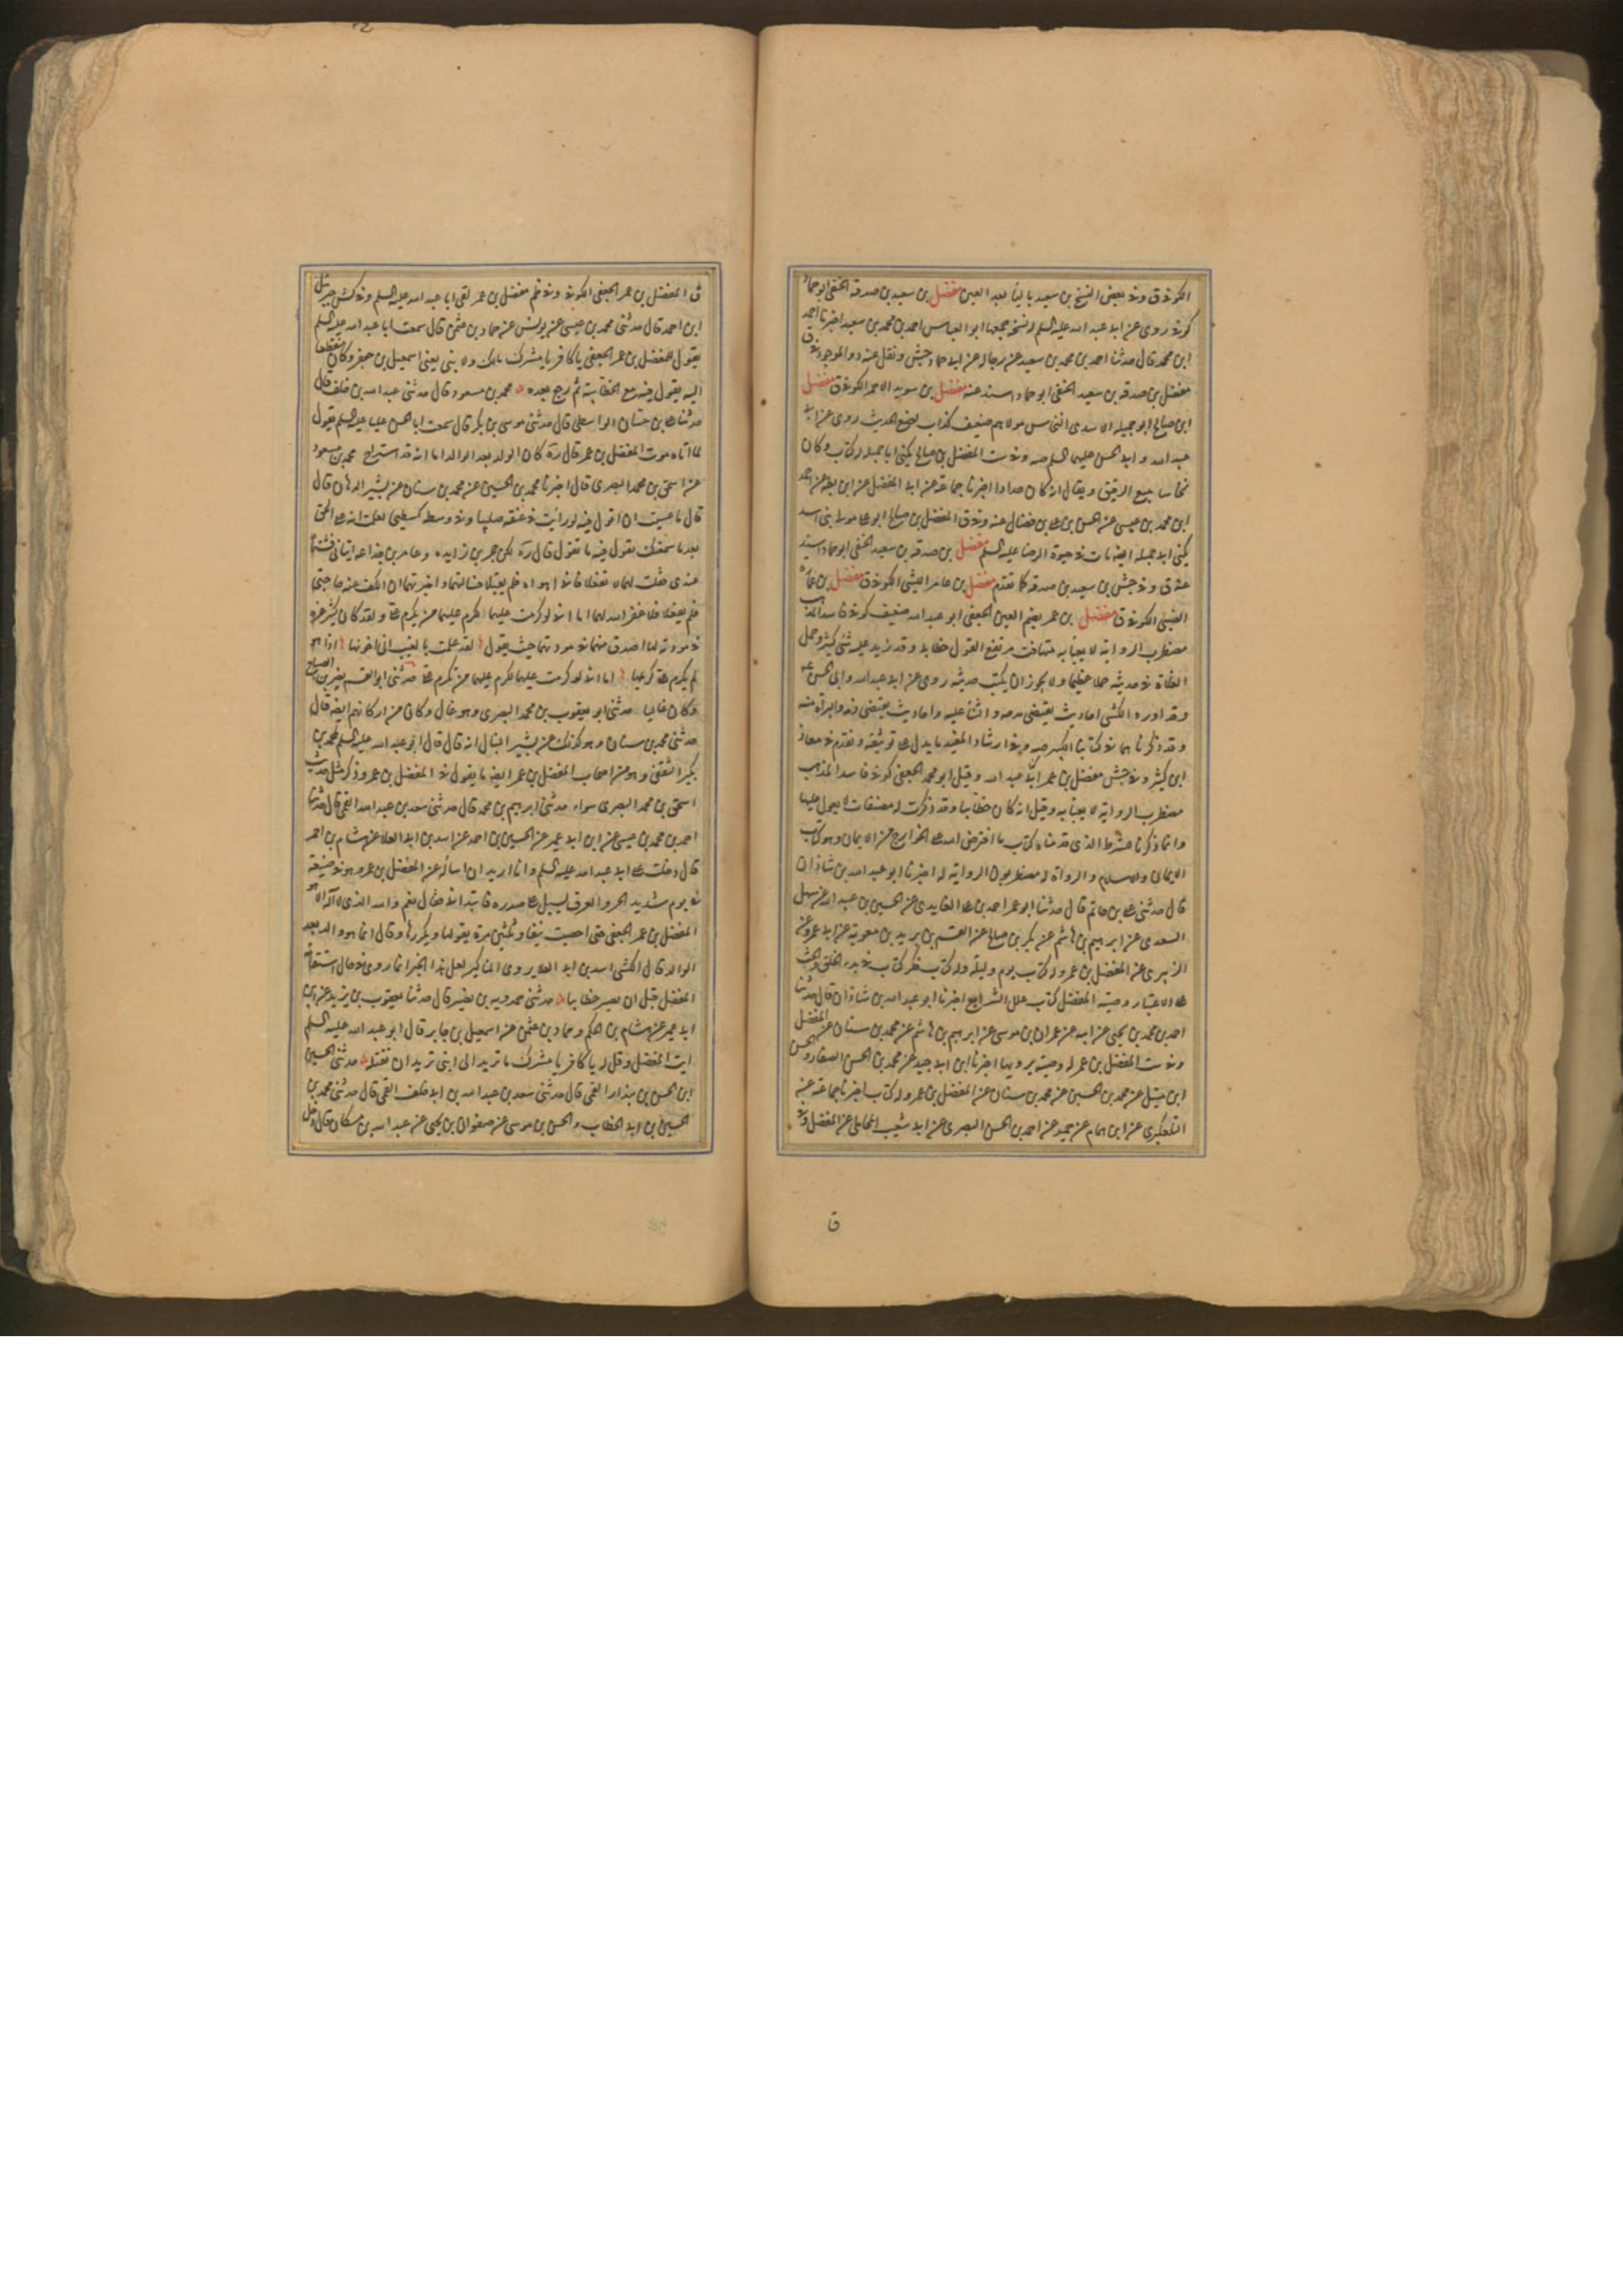 الكوفى ق وفى بعض النسخ بن سعيد بالياء بعد العين مفضل بن سعيد بن صدقة الحنفى ابو حماد
كوفى روى عن ابى عبد الله عليه السلم له نسخه جمعها ابو العباس احمد بن محمد بن سعيد اخبرنا احمد
ابن محمد قال حدثنا احمد بن محمد بن سعيد عن رجاله عن ابى حماد جش ونقل عنه د والموجود فى ق
مفضل بن صدقه بن سعيد الحنفى ابو حماد اسند عنه مفضل بن سويد الاحمر الكوفى ق مفضل
ابن صالح ابو جميله الاسدى النخاس مولاهم ضعيف كذاب يضع الحديث روى عن ابى
عبد الله وابى الحسن عليهما السلم صه وفى ست المفضل بن صالح يكنى ابا جميله له كتاب وكان
نخاسا يبيع الرقيق ويقال انه كان حدادا اخبرنا جماعة عن ابى المفضل عن ابن بطه عن احمد
ابن محمد بن عيسى عن الحسن بن على بن فضال عنه وفى ق المفضل بن صالح ابو على مولى بنى اسد
يكنى ابا جميله ايضه مات فى حيوة الرضا عليه السلم مفضل بن صدقه بن سعيد الحنفى ابو حماد اسند
عنه ق وفى جش بن سعيد بن صدقه كما تقدم مفضل بن عامر الليثى الكوفى ق مفضل بن عماره
الضبى الكوفى ق مفضل بن عمر بضم العين الجعفى ابو عبد الله ضعيف كوفى فاسد المذهب
مضطرب الرواية لا يعبأ به متهافت مرتفع القول خطابى وقد زيد عليه شئ كثير وحمل
الغلاة فى حديثه حملا عظيما ولا يجوز ان يكتب حديثه روى عن ابى عبد الله وابى الحسن عم
وقد اورد الكشى احاديث يقتضى مدحه والثناء عليه واحاديث يقتضى ذمه والبراة منه
وقد ذكرناهما فى كتابنا الكبير صه وفى ارشاد المفيد ما يدل على توثيقه وتقدم فى معاذ
ابن كثير وفى جش مفضل بن عمر ابو عبد الله وقيل ابو محمد الجعفى كوفى فاسد المذهب
مضطرب الرواية لا يعبأ به وقيل انه كان خطابيا وقد ذكرت له مصنفات لا يعول عليها
وانما ذكرنا للشرط الذى قدمناه كتاب ما افترض الله على الجوارح من الايمان وهو كتاب
الايمان والاسلام والرواة له مضطربون الرواية له اخبرنا ابو عبد الله بن شاذان
قال حدثنى على بن حاتم قال حدثنا ابو عمر احمد بن على الفايدى عن الحسين بن عبد الله عن سهل
السعدى عن ابرهيم بن هاشم عن بكر بن صالح عن القسم بن بريد بن معوية عن ابى عمرو عنه
الزبيرى عن المفضل بن عمر وله كتاب يوم وليلة وله كتاب فكر كتاب فى بدء الخلق والحث
على الاعتبار وصية المفضل كتاب علل الشرايع اخبرنا ابو عبد الله بن شاذان قال حدثنا
احمد بن محمد بن يحيى عن ابيه عن عمران بن موسى عن ابرهيم بن هاشم عن محمد بن سنان عن المفضل
وفى ست المفضل بن عمر له وصية يرويها اخبرنا ابن ابى جيد عن محمد بن الحسن عن الصفار والحسن
ابن متيل عن محمد بن الحسين عن محمد بن سنان عن المفضل بن عمر وله كتاب اخبرنا جماعة عن
التلعكبرى عن ابن همام عن حميد عن احمد بن الحسن البصرى عن ابى شعيب المحاملى عن المفضل وفى
ق
ق المفضل بن عمر الجعفى الكوفى وفى ظم مفضل بن عمر لقى ابا عبد الله عليه السلم وفى كش جبرئيل
ابن احمد قال حدثنى محمد بن عيسى عن يونس عن حماد بن عثمن قال سمعت ابا عبد الله عليه السلم
يقول للمفضل بن عمر الجعفى يا كافر يا مشرك مالك ولابنى يعنى اسمعيل بن جعفر وكان منقطعا
اليه يقول فيه مع الخطابية ثم رجع بعده محمد بن مسعود قال حدثنى عبد الله بن خلف قال
حدثنا على بن حسان الواسطى قال حدثنى موسى بن بكر قال سمعت ابا الحسن عليه السلم يقول
لما اتاه موت المفضل بن عمر قال ره كان الوالد بعد الوالد اما انه قد استراح محمد بن مسعود
عن اسحق بن محمد البصرى قال اخبرنا محمد بن الحسين عن محمد بن سنان عن بشير الدهان قال
قال ما عسيت ان اقول فيه لو رأيت فى عنقه صليبا وفى وسطه كسطيحا لعلمت انه على الحق
بعد ما سمعتك تقول فيه ما تقول قال ره لكن حجر بن زايده وعامر بن جذاعه اتيانى فشتماه
عندى فقلت لهما لا تفعلا فانى اهواه فلم يقبلا فسالتهما واخبرتهما ان الكف عنه حاجتى
فلم يفعلا فلا غفر الله لهما اما انى لو كرمت عليهما لكرم عليهما من يكرم على ولقد كان كثير عزة
فى مودته لها اصدق منهما فى مودتهما حيث يقول لقد علمت بالغيب انى اخونها اذا هو
لم يكرم على كريمها اما انى لو كرمت عليهما لكرم عليهما من يكرم على حدثنى ابو القسم نصر بن الصباح
وكان غاليا حدثنى ابو يعقوب بن محمد البصرى وهو غال وكان من اركانهم ايضه قال
حدثنى محمد بن سنان وهو كذلك عن بشير النبال انه قال قال ابو عبد الله عليه السلم لمحمد بن
كثير الثقفى وهو من اصحاب المفضل بن عمر ايضه ما يقول فى المفضل بن عمر وذكر مثل حديث
اسحق بن محمد البصرى سواء حدثنى ابرهيم بن محمد قال حدثنى سعد بن عبد الله القمى قال حدثنا
احمد بن محمد بن عيسى عن ابن ابى عمير عن الحسين بن احمد عن اسد بن ابى العلا عن هشام بن احمر
قال دخلت على ابى عبد الله عليه السلم وانا اريد ان اسأله عن المفضل بن عمر وهو فى ضيعة
فى يوم شديد الحر والعرق يسيل على صدره فابتدانى فقال نعم والله الذى لا اله الا هو
المفضل بن عمر الجعفى حتى احصيت نيفا وثلثين مرة يقولها ويكررها وقال انما هو والد بعد
الوالد قال الكشى اسد بن ابى العلا يروى المناكير لعل هذا الخبر انما روى فى حال استقامة
المفضل قبل ان يصير خطابيا حدثنى حمدويه بن نصير قال حدثنا يعقوب بن يزيد عن ابن
ابى عمير عن هشام بن الحكم وحماد بن عثمن عن اسمعيل بن جابر قال ابو عبد الله عليه السلم
ايت المفضل وقل له يا كافر يا مشرك ما تريد الى ابنى تريد ان تقتله حدثنى الحسين
ابن الحسن بن بندار القمى قال حدثنى سعد بن عبد الله بن ابى خلف القمى قال حدثنى محمد بن
الحسين بن ابى الخطاب والحسن بن موسى عن صفوان بن يحيى عن عبد الله بن مسكان قال دخل